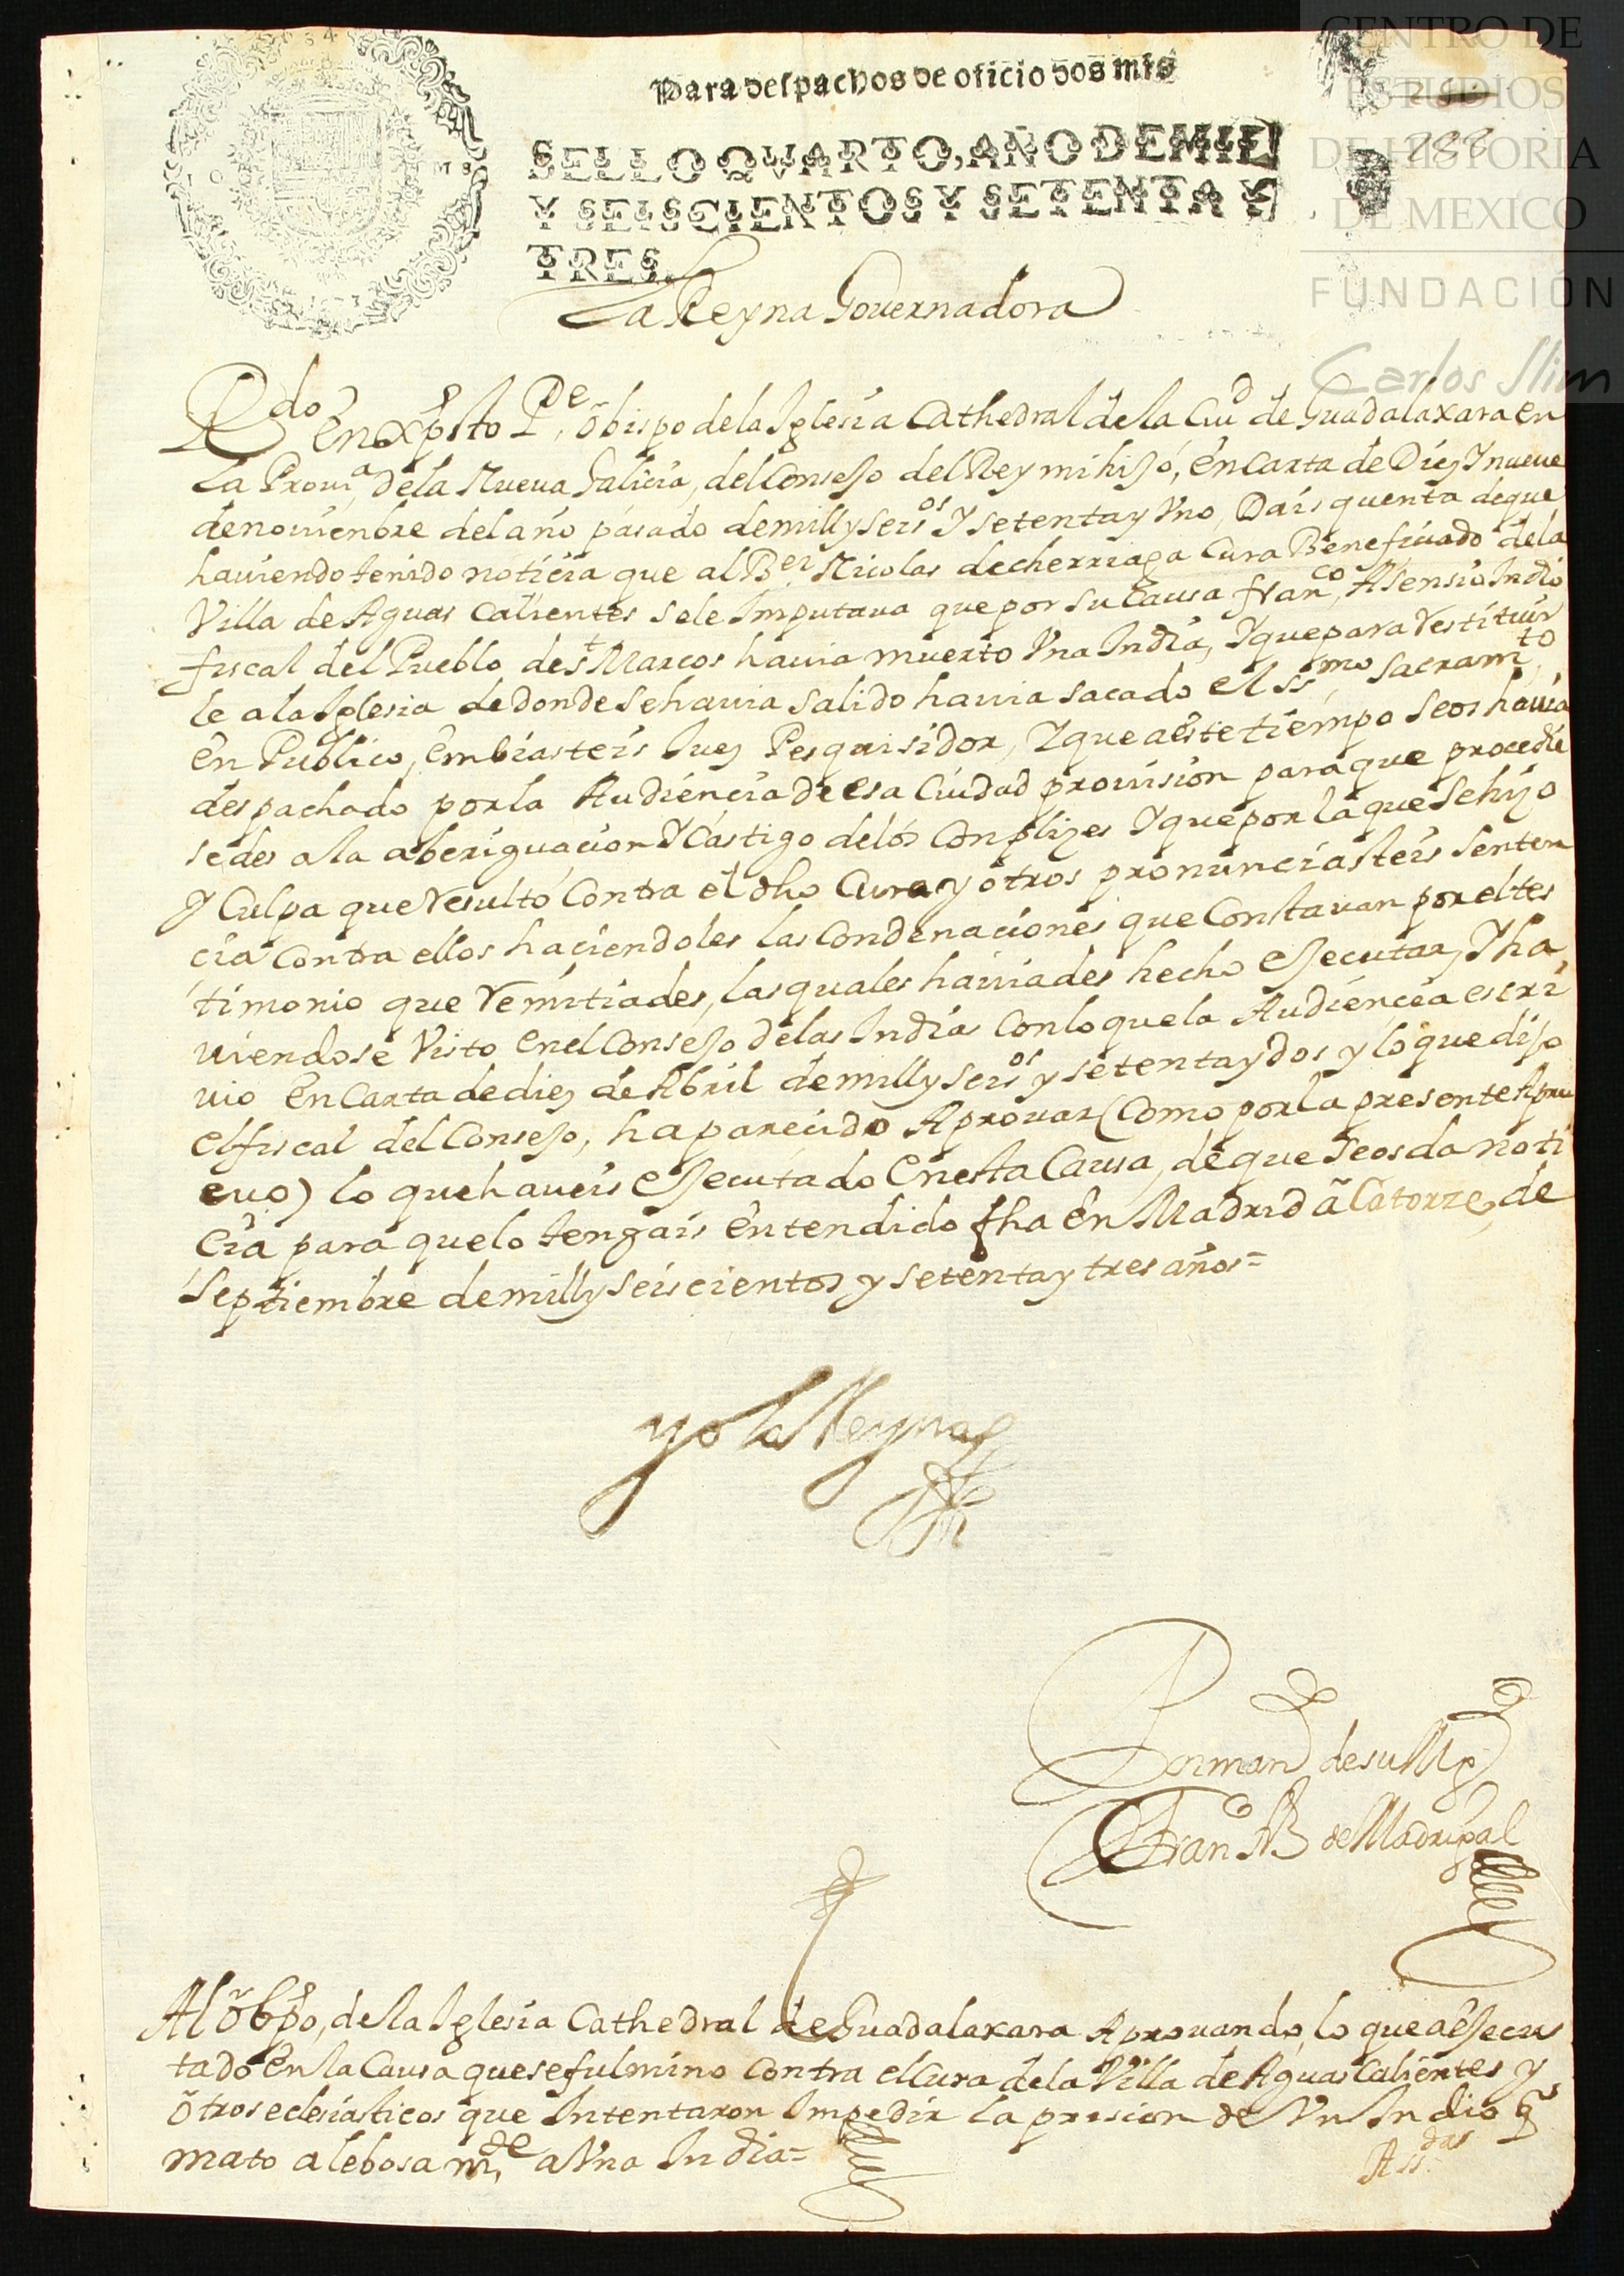 CENTRO DE
ESTUDIOS
DE HISTORIA
DE MEXICO
FUNDACIÓN
Carlos Slim
Para despachos de oficio dos mrs
SELLO QVARTO, AÑO DE MIL
Y SEISCIENTOS Y SETENTA Y
TRES.
La Reyna Governadora
Rdo en xpto Pe, obispo de la Iglesia Cathedral de la Ciud de Guadalaxara en
La Prouia, de la Nueua Galicia, del Consejo del Rey mi hijo, en Carta de Diez Y nueue
de nouienbre del año pasado de mill y seisos Y setenta y Vno, Dais quenta de que
hauiendo tenido noticia que al Ber Nicolas de cherriaga Cura Beneficiado de la
Villa de Aguas Calientes se le Imputaua que por su Causa franco, Asensio Indio
fiscal del Pueblo de st Marcos hauia muerto Vna India, Y que para restituir
le a la Iglesia de donde se hauia salido hauia sacado el ssmo sacramto,
en Publico, embiasteis Juez Pesquisidor, Y que a este tiempo se os hauia
despachado por la Audiencia de esa Ciudad prouision para que procedie
sedes a la aberiguacion Y Castigo de los Conplizes Y que por la que se hizo
Y Culpa que resultó Contra el dho Cura y otros pronunciasteis senten
cia Contra ellos haciendoles las Condenaciones que Constauan por el tes
timonio que remitiades, las quales hauiades hecho ejecutar, Y ha
uiendose Visto en el Consejo de las Indias Con lo que la Audiencia escri
uio en Carta de diez de Abril de mill y seisos y setenta y dos y lo que dijo
el fiscal del Consejo, ha parecido Aprouar (Como por la presente Apru
euo) lo que haueis ejecutado en esta Causa, de que se os da noti
cia para que lo tengais entendido fha en Madrid a Catorze de
Septiembre de mill y seiscientos y setenta y tres años=
yo la Reyna
Por mando de su Mgd
Franco de Madrigal
Al obpo, de la Iglesia Cathedral de Guadalaxara Aprouando, lo que a ejecu
tado en la Causa que se fulmino Contra el Cura de la Villa de Aguas Calientes y
otros eclesiasticos que Intentaron Impedir la prision de Vn Indio q
mato alebosamde, a Vna India=